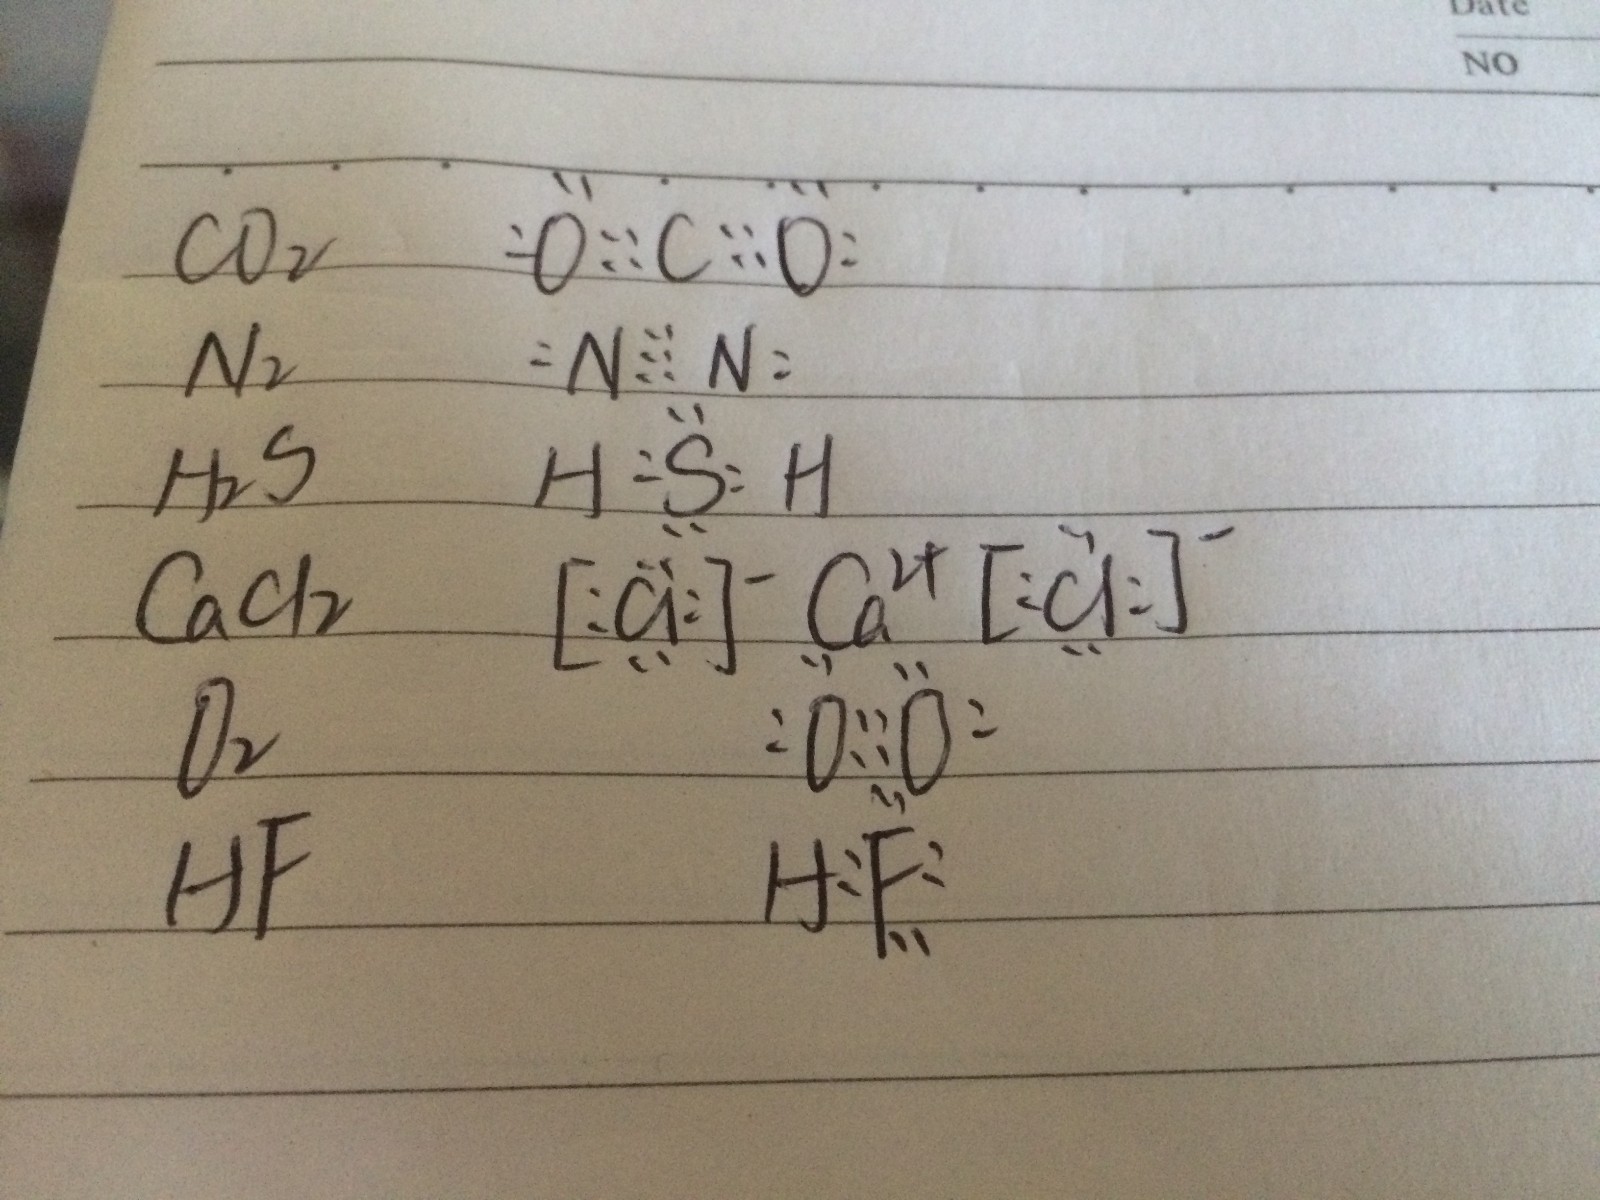 Date
NO
CO₂ :Ö::C::Ö:
N₂ :N⋮⋮N:
H₂S H:S̤̈:H
CaCl₂ [:C̤̈l:]⁻ Ca²⁺ [:C̤̈l:]⁻
O₂ :Ö::Ö:
HF H:F̤̈: